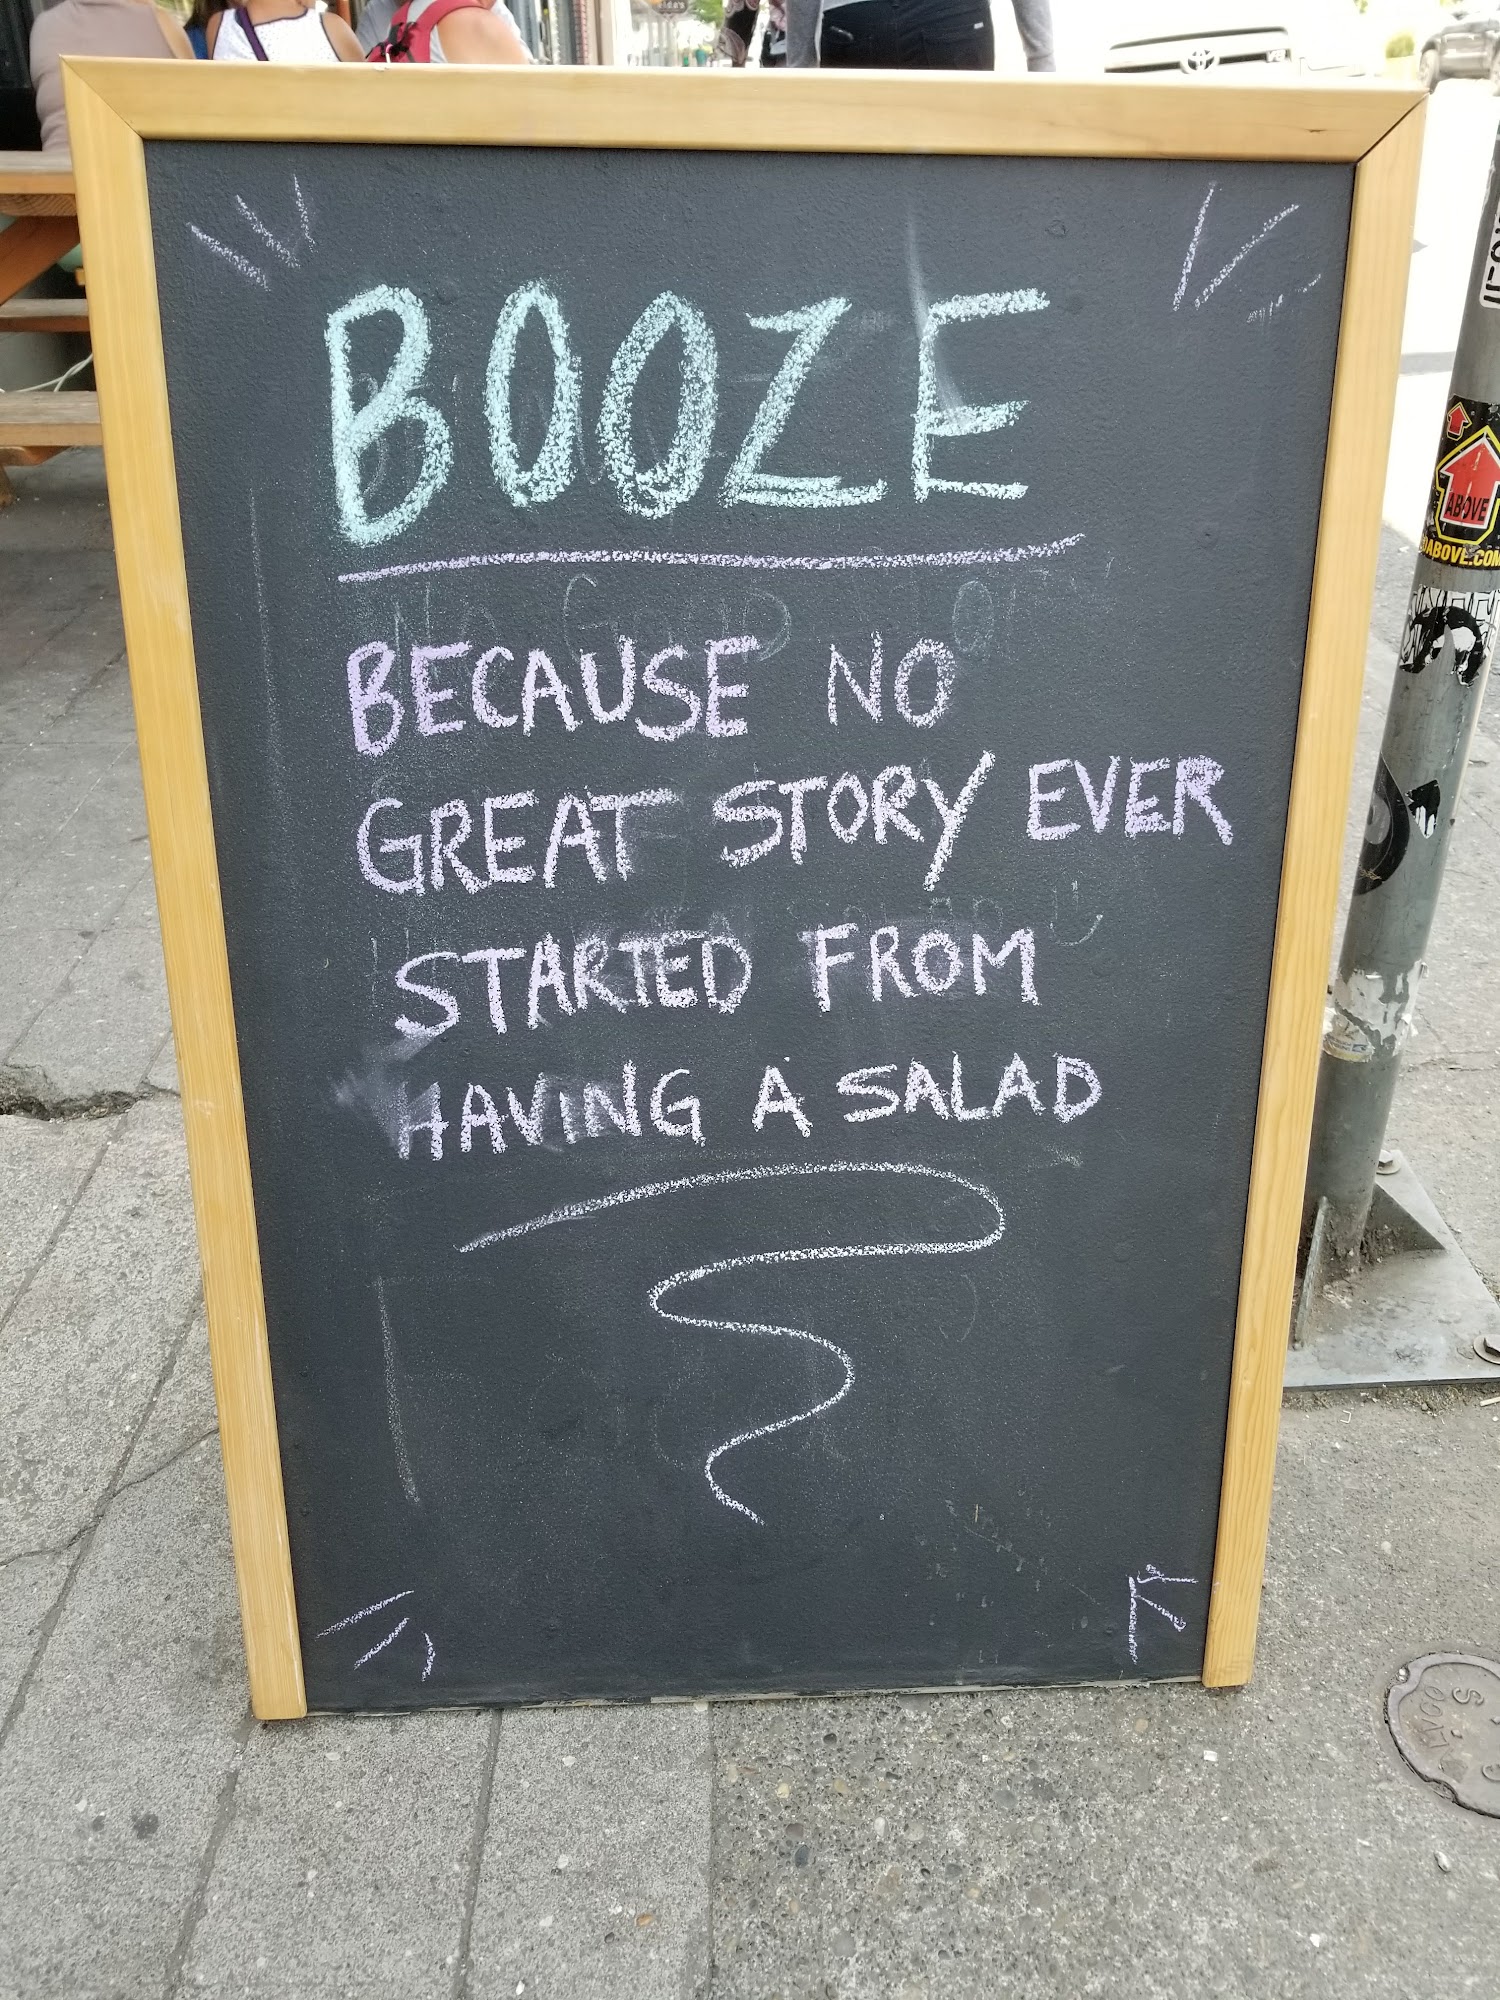 BOOZE
BECAUSE NO
GREAT STORY EVER
STARTED FROM
HAVING A SALAD
ABOVE